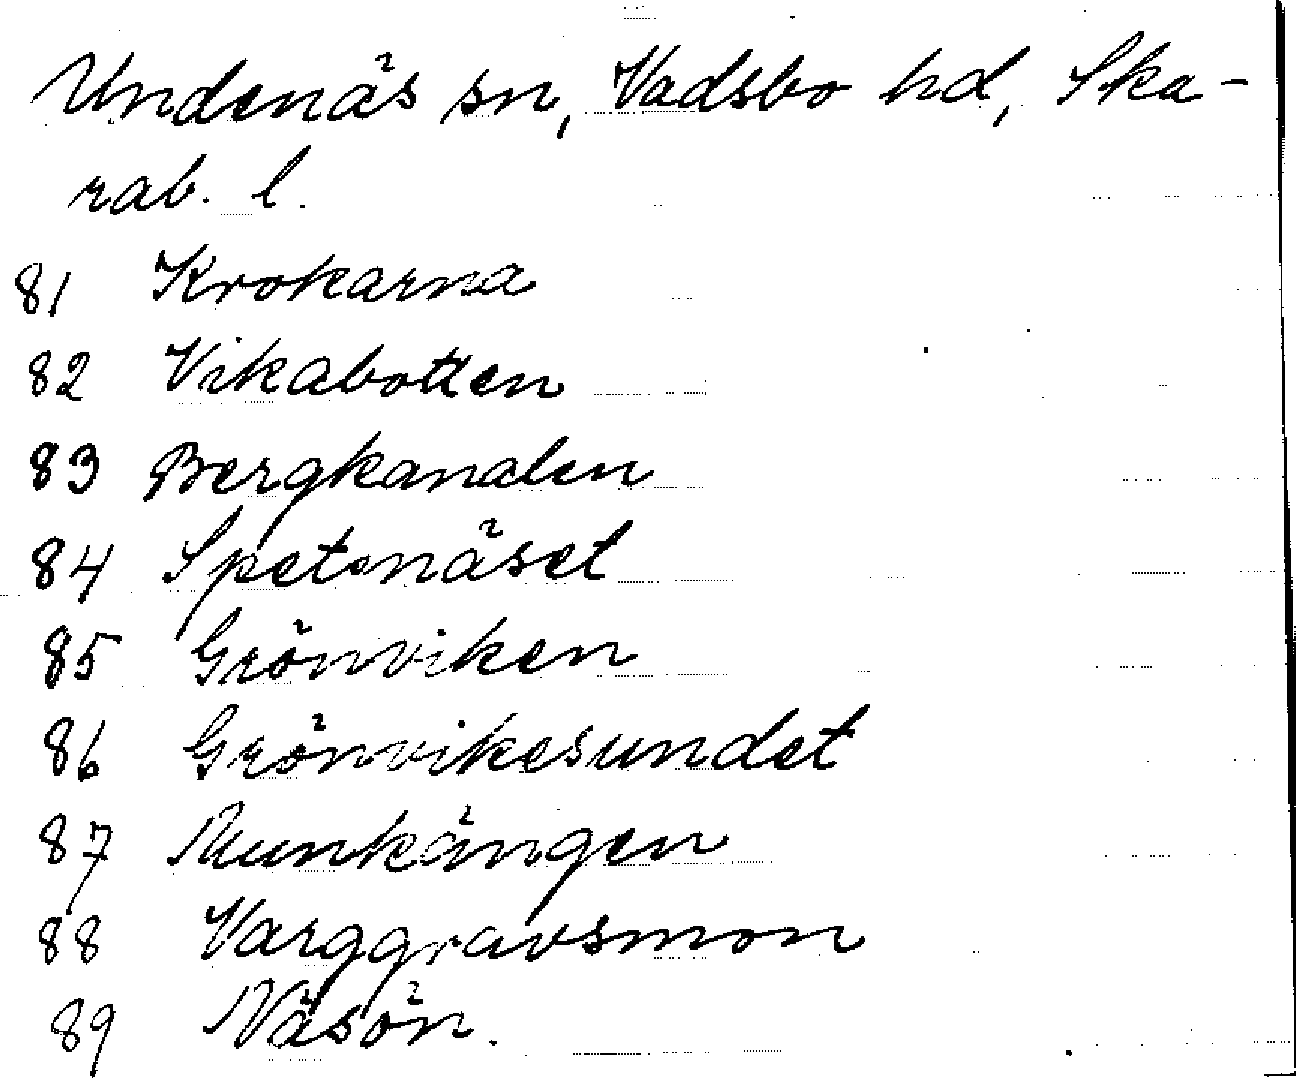 Undenäs sn, Vadsbo hd, Ska-
rab. l.
81 Krokarna
82 Vikabotten
83 Bergkanalen
84 Spetsnäset
85 Grönviken
86 Grönvikesundet
87 Munkängen
88 Varggravsmon
89 Näsön.